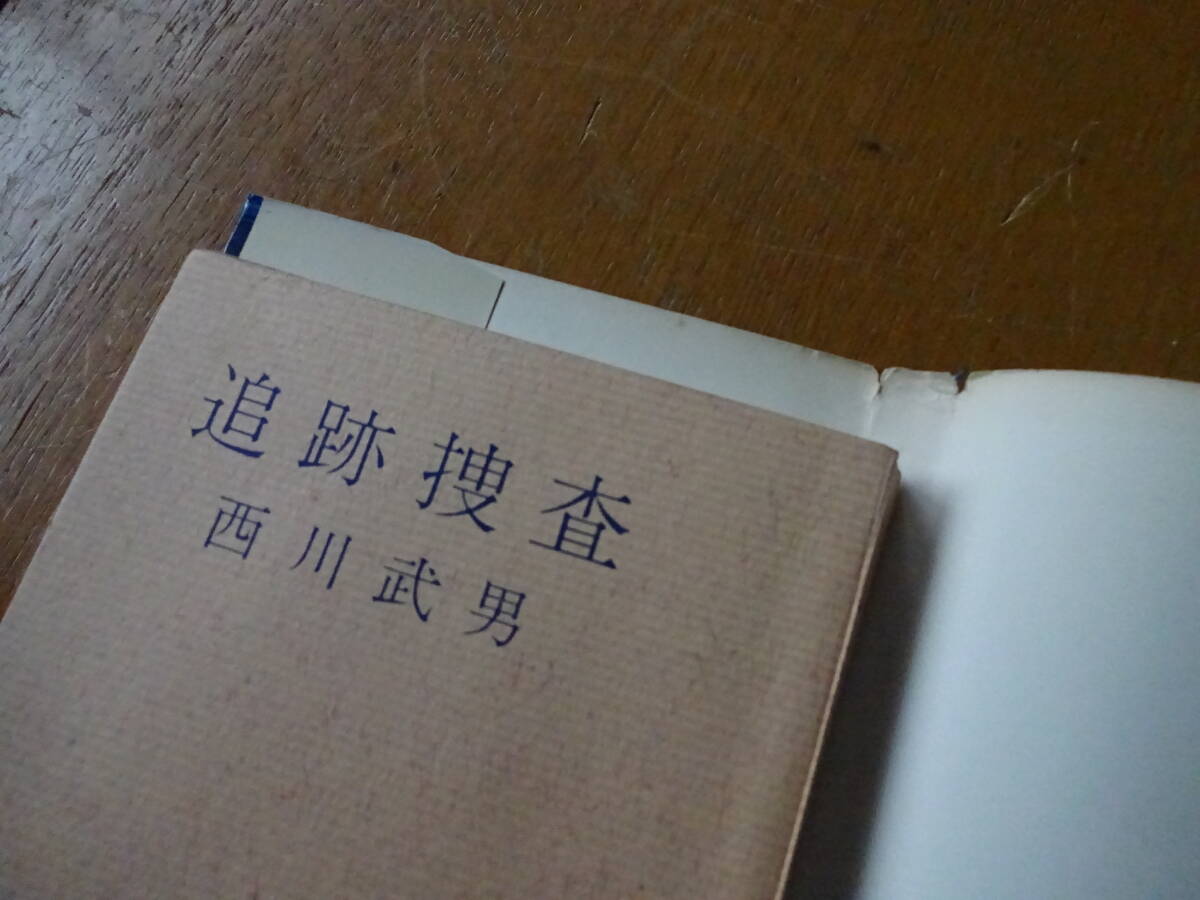 追跡捜査
西川武男